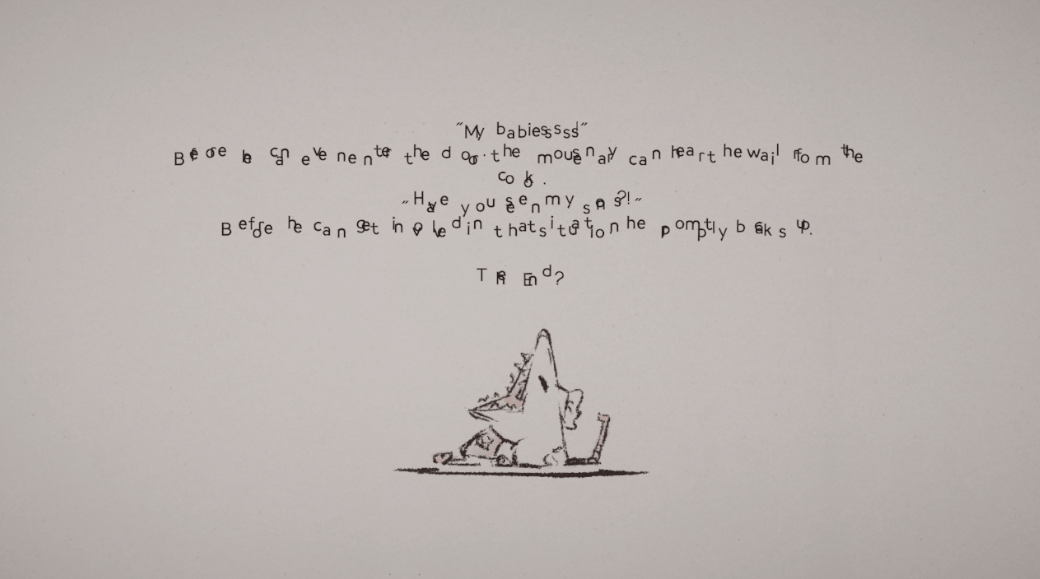 "My babiesssss!"
Before he can even enter the door. the mousenary can hear the wail from the
cook.
"Have you seen my sons?!"
Before he can get involved in that situation he promptly backs up.
The End?